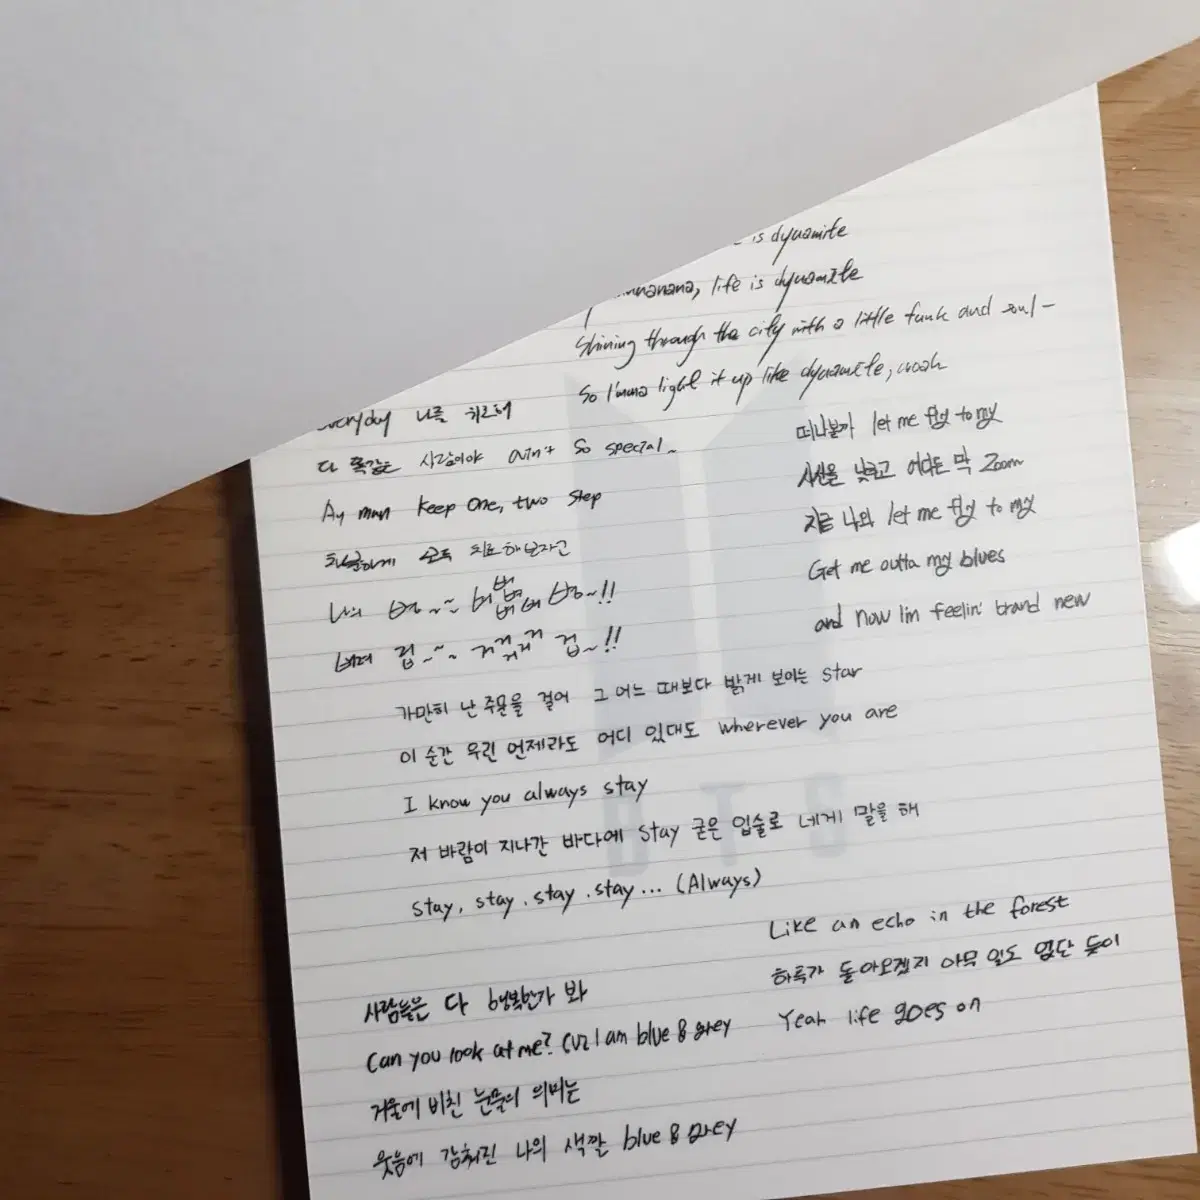 is dynamite
life is dynamite
Shining through the city with a little funk and soul-
So I'mma light it up like dynamite, woah
everyday 나를 위로해
다 똑같은 사람이야 ain't so special~
Ay man keep one, two step
차분하게 모두 치료해보자고
나의 병~~~ 버버벙벙~!!
겁~~~ 거거거거 겁~!!
떠나볼까 let me fly to my
시선을 낮추고 어디든 막 Zoom
지금 나의 let me fly to my
Get me outta my blues
and now I'm feelin' brand new
가만히 난 주문을 걸어 그 어느 때보다 밝게 보이는 star
이 순간 우린 언제라도 어디 있대도 wherever you are
I know you always stay
저 바람이 지나간 바다에 stay 굳은 입술로 네게 말을 해
stay, stay, stay, stay... (Always)
Like an echo in the forest
하루가 돌아오겠지 아무 일도 없단 듯이
Yeah life goes on
사람들은 다 행복한가 봐
Can you look at me? Cuz I am blue & grey
거울에 비친 눈물의 의미는
웃음에 감춰진 나의 색깔 blue & grey
BTS